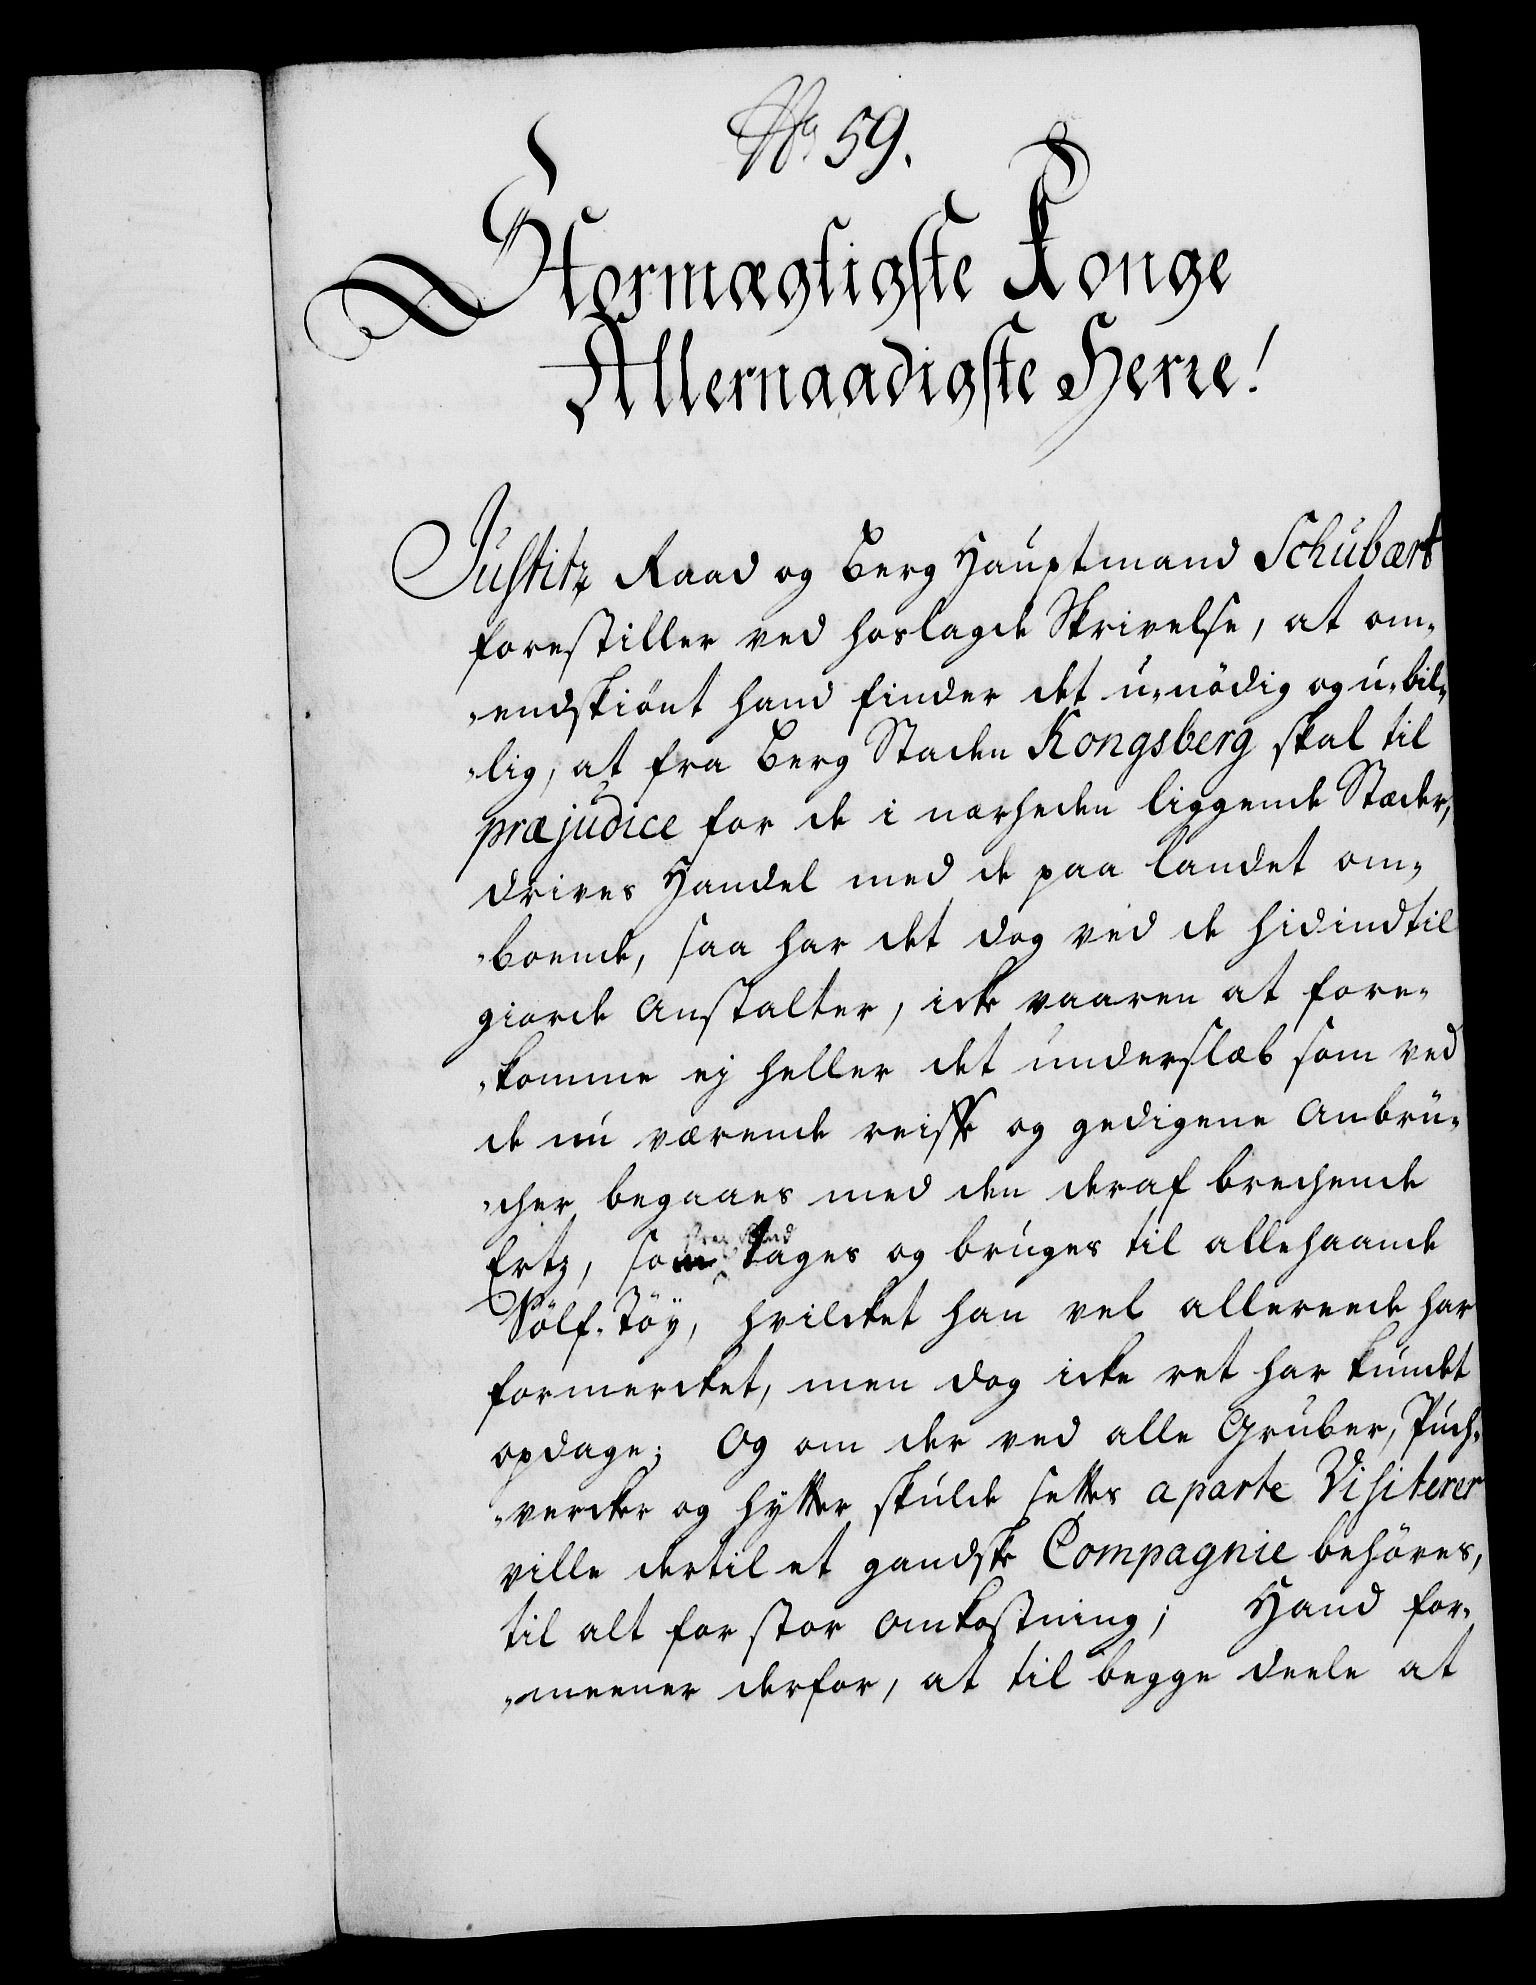 No 59.
Stormægtigste Konge
Allernaadigste Herre!
Justitz Raad og Berg Hauptmand Schubart
forestiller ved hoslagde Skrivelse, at om-
-endskiønt hand finder det u-nödig og u-bil-
-lig, at fra Berg Staden Kongsberg skal til
præjudice for de i nærheden liggende Stæder,
drives Handel med de paa Landet om-
-boende, saa har det dog ved de hidindtil
giorde Anstalter, icke vaaren at fore-
-komme ej heller det underslæb som ved
de nu værende reiske og gedigene Anbrü-
-cher begaaes med den deraf brechende
Ertz, som tages og bruges til allehaande
Sölf-Töÿ, hvilcket han vel allereede har
formercket, men dog icke ret har kundet
opdage; Og om der ved alle Gruber, Puch-
-vercker og hytter skulde settes aparte Visiterer
ville dertil et gandske Compagnie behöres,
til alt for stor Omkostning; Hand for-
-meener derfor, at til begge deele at